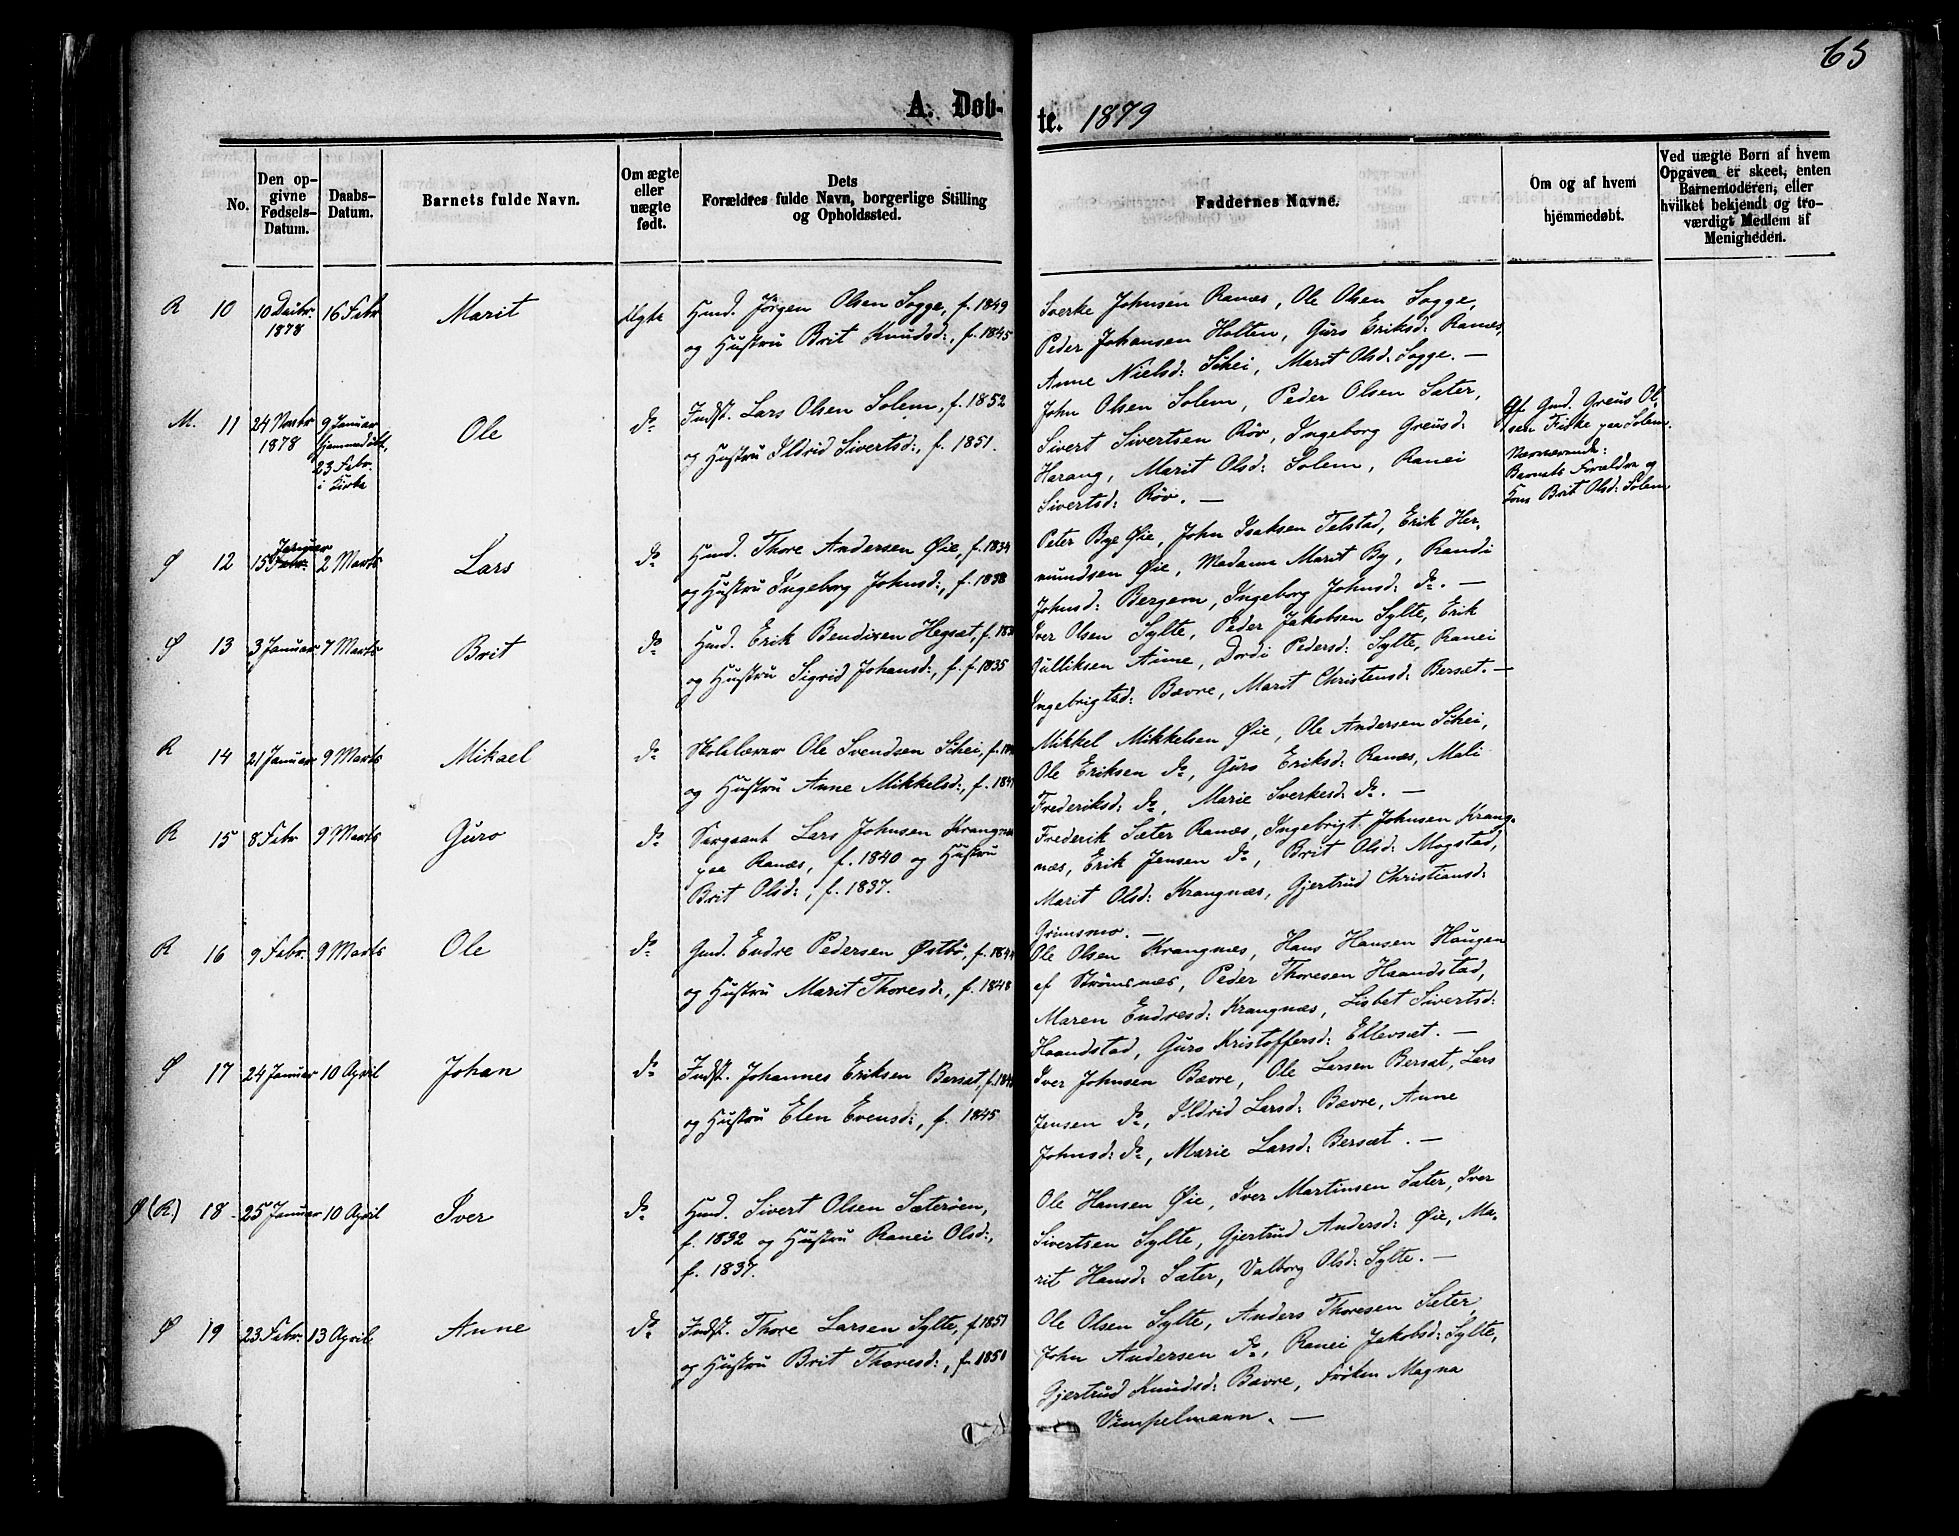 63
A. Døb-
te. 1879
No.
Den op-
givne
Fødsels-
Datum.
Daabs-
Datum.
Barnets fulde Navn.
Om ægte
eller
uægte
født.
Dets
Forældres fulde Navn, borgerlige Stilling
og Opholdssted.
Faddernes Navne.
Om og af hvem
hjemmedøbt.
Ved uægte Børn af hvem
Opgaven er skeet, enten
Barnemoderen, eller
hvilket bekjendt og tro-
værdigt Medlem af
Menigheden.
R 10 10 Decbr. 1878 16 Febr Marit Ægte
Gmd. Jørgen Olsen Sogge, f. 1849
og Hustru Brit Knudsd:, f. 1845
Sverke Johnsen Ranæs, Ole Olsen Sogge,
Peder Johansen Holten, Guro Eriksd: Ranæs,
Anne Nielsd: Schei, Marit Olsd: Sogge. —
M. 11 24 Novbr 1878
9 Januar
hjemmedøbt,
23 Febr.
i Kirke
Ole do
Indst. Lars Olsen Solem, f. 1852
og Hustru Ildrid Sivertsd:, f. 1851.
John Olsen Solem, Peder Olsen Sæter,
Sivert Sivertsen Röv, Ingeborg Greusd:
Harang, Marit Olsd: Solem, Ranei
Sivertsd: Röv. —
Af Gmd. Greus Ol-
sen Fiske paa Solem.
Nærværende:
Barnets Forældre og
Kone Brit Olsd: Solem
Ø 12 15 Januar Febr: 2 Marts Lars do
Gmd. Thore Andersen Øie, f. 1834
og Hustru Ingeborg Johnsd:, f. 1838
Peter Bye Øie, John Isaksen Telstad, Erik Her-
mundsen Øie, Madame Marit By, Randi
Johnsd: Bergem, Ingeborg Johnsd: do. —
Ø 13 3 Januar 7 Marts Brit do
Gmd. Erik Bendixen Hegsæt, f. 183
og Hustru Sigrid Johansd:, f. f. 1835
Iver Olsen Sylte, Peder Jakobsen Sylte, Erik
Gulliksen Aune, Dordi Pedersd: Sylte, Ranei
Ingebrigtsd: Bævre, Marit Christensd: Bersæt. —
R 14 21 Januar 9 Marts Mikael do
Skolelærer Ole Svendsen Schei, f. 18
og Hustru Anne Mikkelsd:, f. 184
Mikkel Mikkelsen Øie, Ole Andersen Schei,
Ole Eriksen do, Guro Eriksd: Ranæs, Mali
Frederiksd: do, Marie Sverkesd: do. —
R 15 8 Febr 9 Marts Guro do
Sergeant Lars Johnsen Krangnæs
paa Ranæs, f. 1840 og Hustru
Brit Olsd:, f. 1837.
Frederik Sæter Ranæs, Ingebrigt Johnsen Krang-
næs, Erik Jensen do, Brit Olsd: Mogstad,
Marit Olsd: Krangnæs, Gjertrud Christiansd:
Grimsmo. —
R 16 9 Febr. 9 Marts Ole do
Gmd. Endre Pedersen Østbö, f. 184
og Hustru Marit Thoresd:, f. 1848
Ole Olsen Krangnæs, Hans Hansen Haugen
af Strömsnæs, Peder Thoresen Haandstad,
Maren Endresd: Krangnæs, Lisbet Sivertsd:
Haandstad, Guro Kristoffersd: Ellevsæt. —
Ø 17 24 Januar 10 April Johan do
Indst. Johannes Eriksen Bersæt, f. 184
og Hustru Elen Evensd:, f. 1845
Iver Johnsen Bævre, Ole Larsen Bersæt, Lars
Jensen do, Ildrid Larsd: Bævre, Anne
Johnsd: do, Marie Larsd: Bersæt. —
Ø (R.) 18 25 Januar 10 April Iver do
Gmd. Sivert Olsen Sæteröen,
f. 1832 og Hustru Ranei Olsd:,
f. 1837.
Ole Hansen Øie, Iver Martinsen Sæter, Iver
Sivertsen Sylte, Gjertrud Andersd: Øie, Ma-
rit Hansd: Sæter, Valborg Olsd: Sylte. —
Ø 19 23 Febr. 13 April Anne do
Indst. Thore Larsen Sylte, f. 1851
og Hustru Brit Thoresd:, f. 1851
Ole Olsen Sylte, Anders Thoresen Sæter,
John Andersen do, Ranei Jakobsd: Sylte,
Gjertrud Knudsd: Bævre, Fröken Magna
Vimpelmann. —